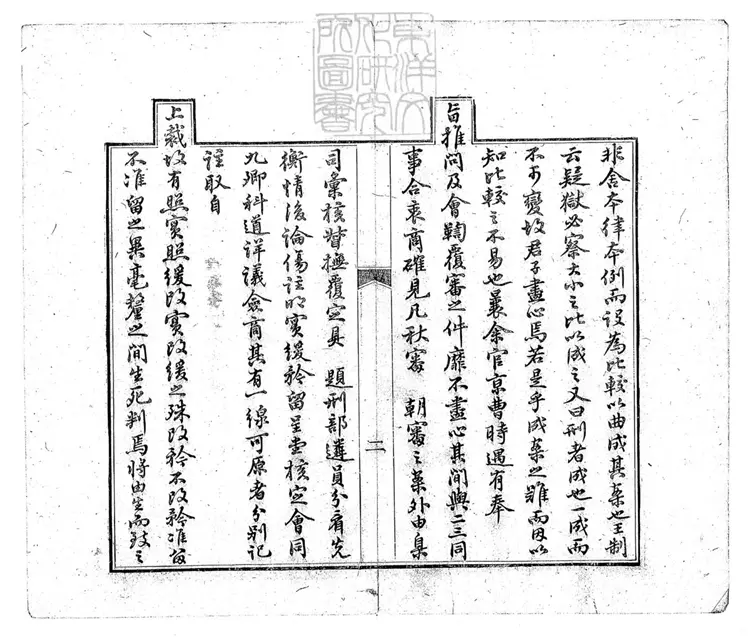 非舍本律本例而设為比較以曲成其案也王制
云疑獄必察大小之比以成之又曰刑者成也一成而
不可變故君子盡心焉若是乎成案之難而因以
知比較之不易也曩余官京曹時遇有奉
旨推问及會鞫覆審之件靡不盡心其间與二三同
事合衷商確見凡秋審 朝審之案外由臬
二
司彙核督撫覆定具 題刑部遴員分看先
衡情後論傷註明實缓矜留呈堂核定會同
九卿科道詳議僉商其有一線可原者分别记
註取自
上裁故有照實照缓改實改缓之殊改矜不改矜准留
不准留之異毫釐之间生死判焉將由生而致之
東洋文化研究所圖書